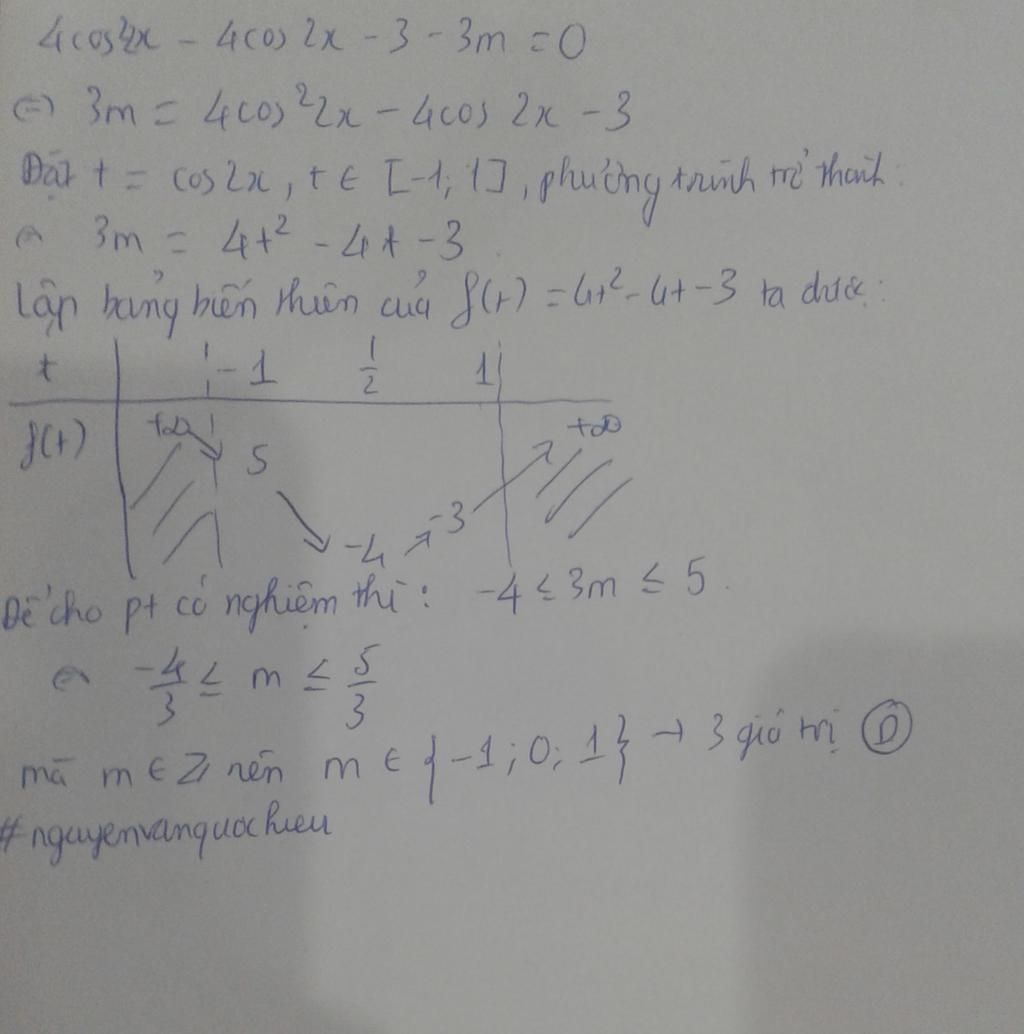 4cos²2x - 4cos 2x - 3 - 3m = 0
⇔ 3m = 4cos²2x - 4cos 2x - 3
Đặt t = cos2x, t ∈ [-1; 1], phương trình trở thành:
⇔ 3m = 4t² - 4t - 3
Lập bảng biến thiên của f(t) = 4t² - 4t - 3 ta được:
t -1 1/2 1
f(t) +∞ 5 -4 -3 +∞
Để cho pt có nghiệm thì: -4 ≤ 3m ≤ 5.
⇔ -4/3 ≤ m ≤ 5/3
mà m ∈ Z nên m ∈ {-1; 0; 1} → 3 giá trị Ⓓ
#nguyenvanquochieu